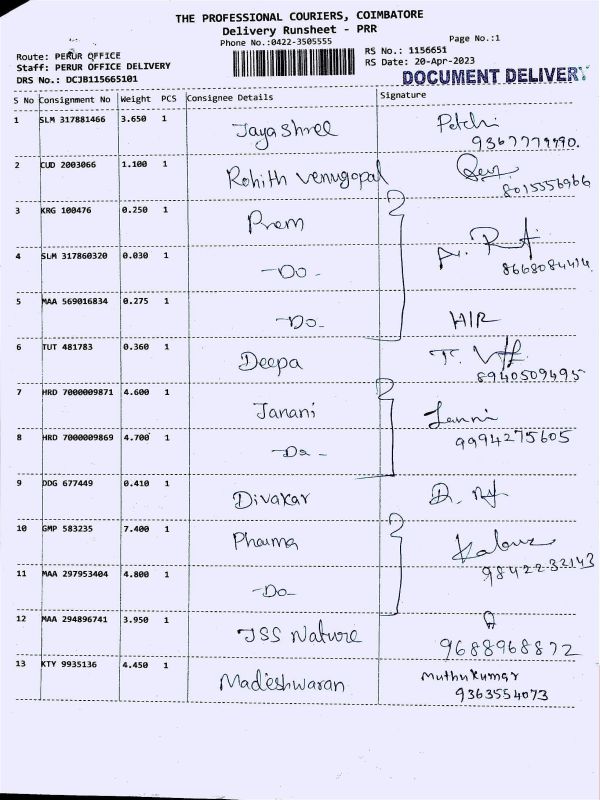 THE PROFESSIONAL COURIERS, COIMBATORE
Delivery Runsheet - PRR
Phone No.:0422-3505555
Page No.:1
Route: PERUR OFFICE
Staff: PERUR OFFICE DELIVERY
DRS No.: DCJB115665101
RS No.: 1156651
RS Date: 20-Apr-2023
DOCUMENT DELIVERY
S No Consignment No Weight PCS Consignee Details Signature
1 SLM 317881466 3.650 1 Jayashree Petchi
9367779990.
2 CUD 2003066 1.100 1 Rohith Venugopal
8015556966
3 KRG 100476 0.250 1 Prem
4 SLM 317860320 0.030 1 -Do-
8668084414
5 MAA 569016834 0.275 1 -Do- HIR
6 TUT 481783 0.360 1 Deepa
8940509495
7 HRD 7000009871 4.600 1 Janani
8 HRD 7000009869 4.700 1 -Do- 9994275605
9 DDG 677449 0.410 1 Divakar
10 GMP 583235 7.400 1 Pharma
9842232143
11 MAA 297953404 4.800 1 -Do-
12 MAA 294896741 3.950 1 JSS Nature
9688968872
13 KTY 9935136 4.450 1 Madeshwaran Muthukumar
9363554073